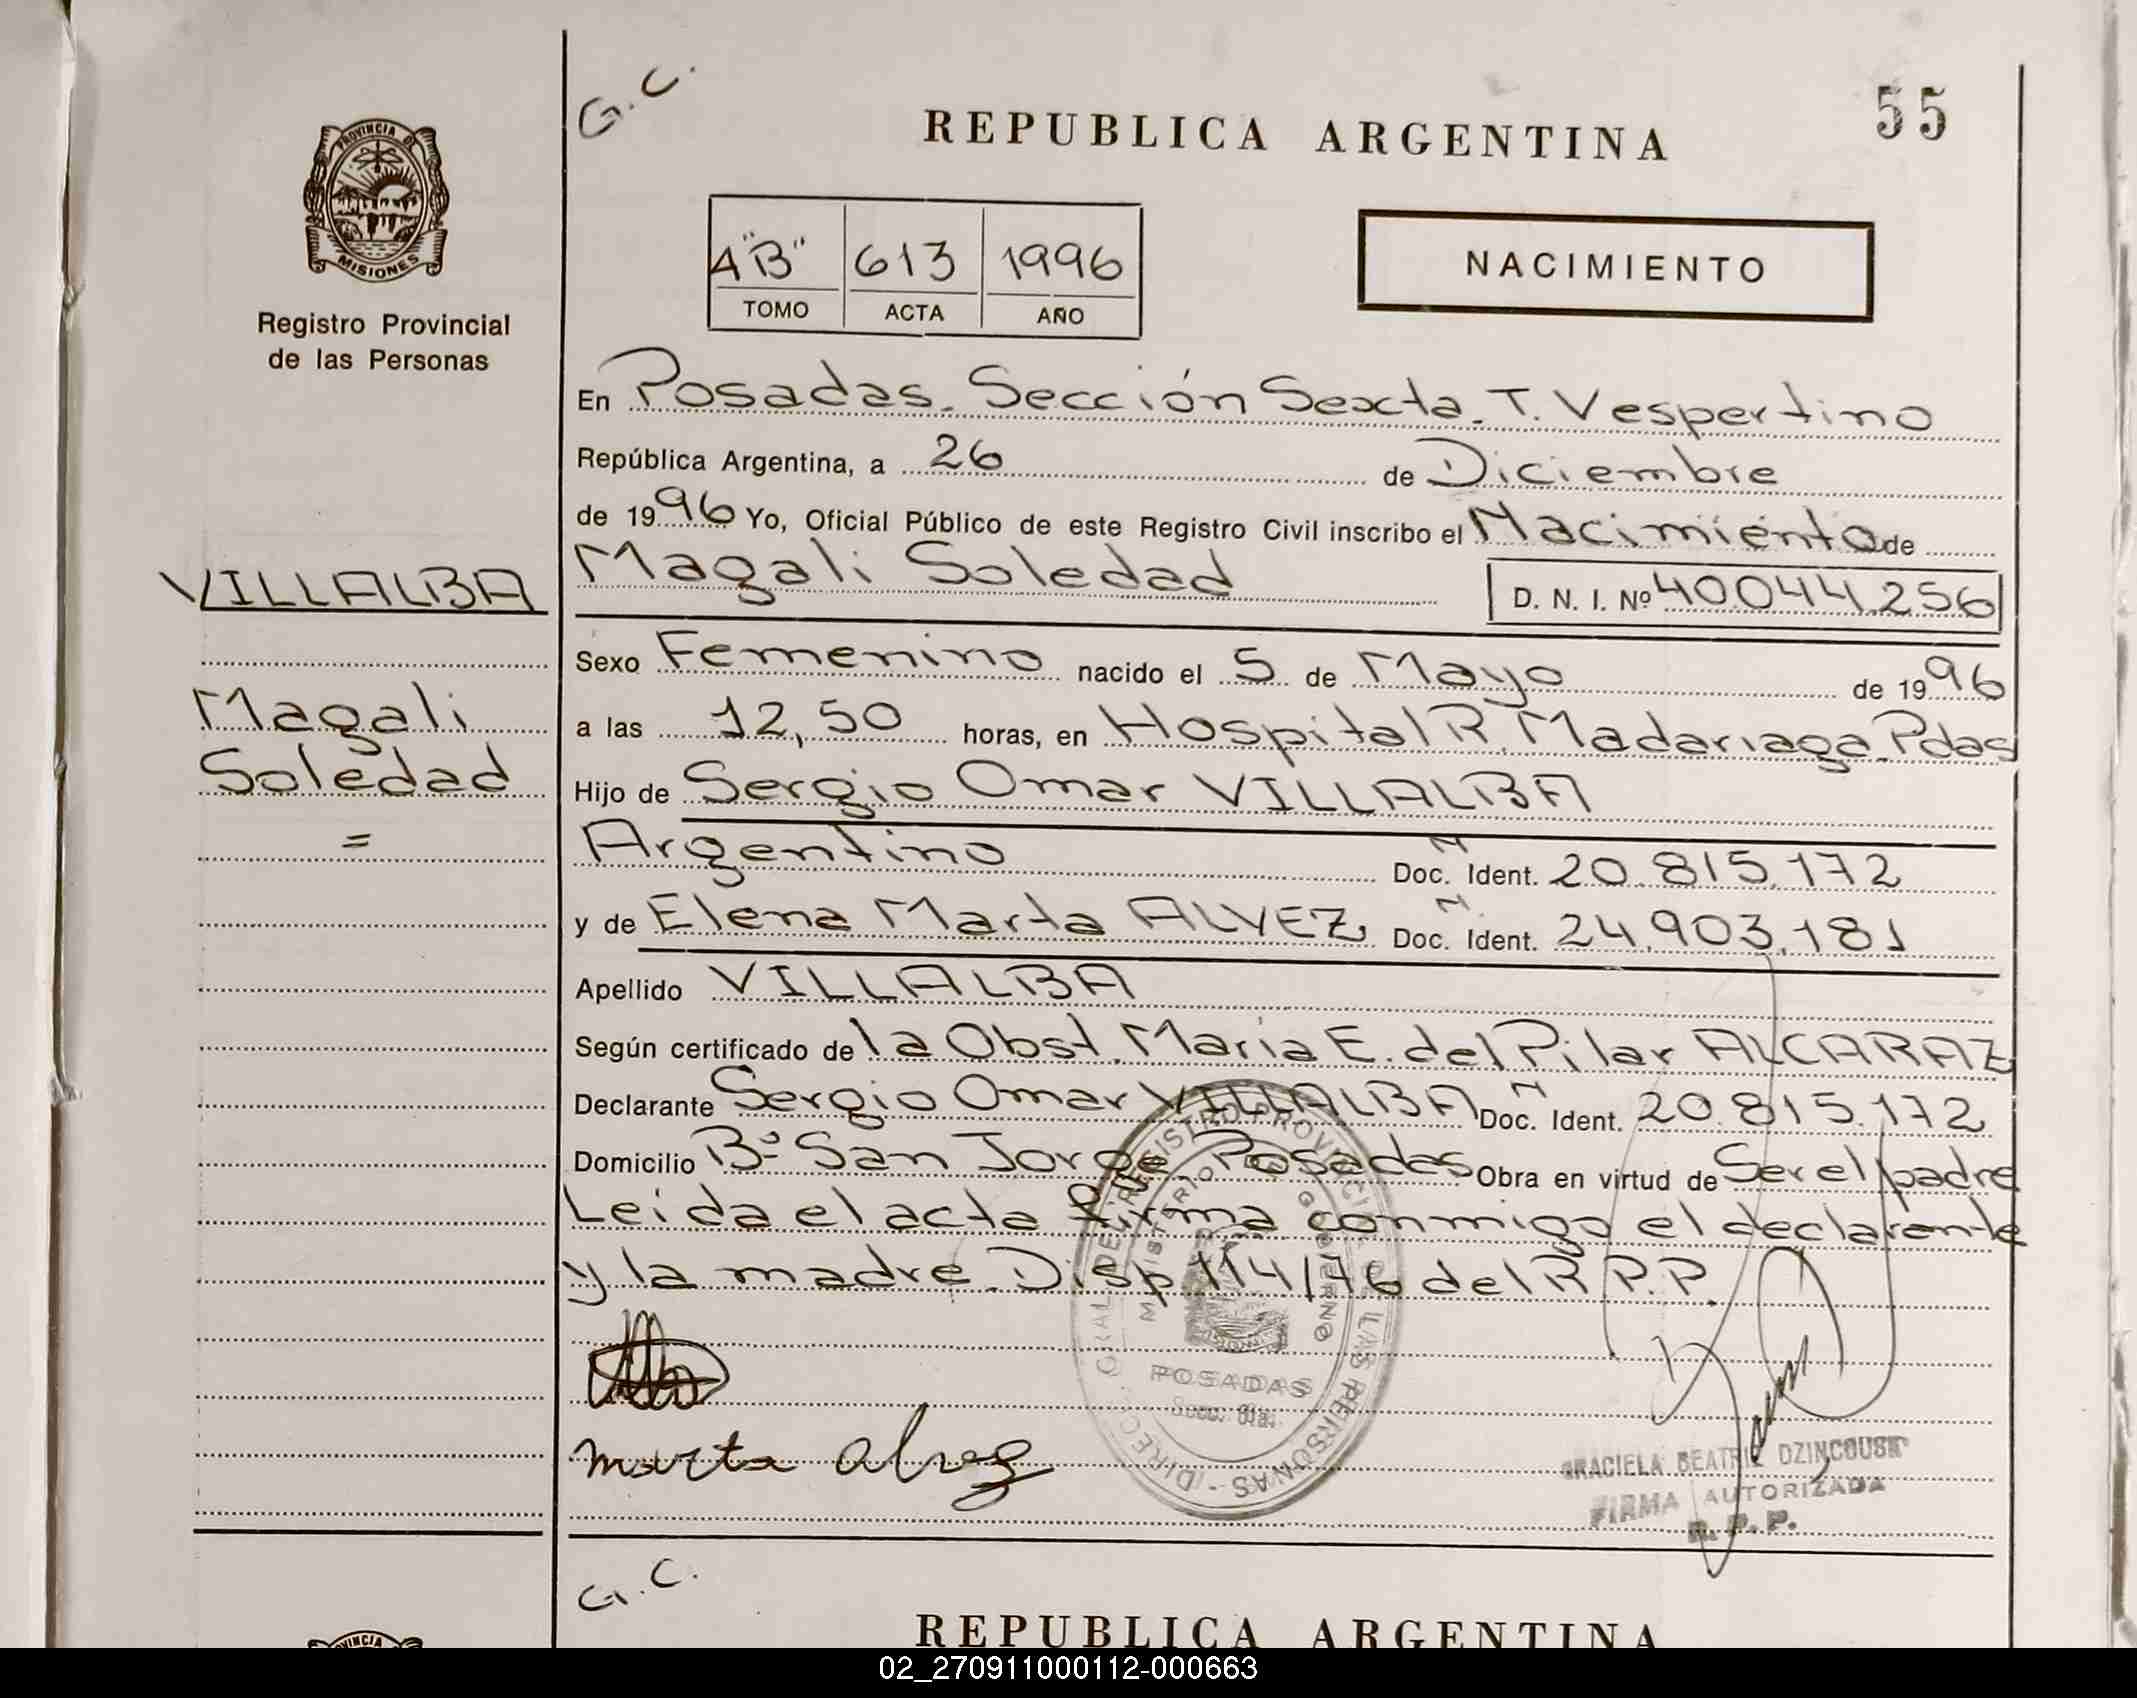 G.C.
55
REPUBLICA ARGENTINA
PROVINCIA DE
MISIONES
Registro Provincial
de las Personas
A "B" 613 1996
TOMO ACTA AÑO
NACIMIENTO
En Posadas. Sección Sexta. T. Vespertino
República Argentina, a 26 de Diciembre
de 1996 Yo, Oficial Público de este Registro Civil inscribo el Nacimiento de
VILLALBA
Magali Soledad D. N. I. Nº 40044.256
Sexo Femenino nacido el 5 de Mayo de 1996
Magali
a las 12,50 horas, en Hospital R. Madariaga. Pdas
Soledad
Hijo de Sergio Omar VILLALBA
=
Argentino Doc. N Ident. 20.815.172
y de Elena Marta ALVEZ Doc. N Ident. 24.903.181
Apellido VILLALBA
Según certificado de la Obst. Maria E. del Pilar ALCARAZ
Declarante Sergio Omar VILLALBA Doc. N Ident. 20.815.172
Domicilio Bº San Jorge Posadas Obra en virtud de Ser el padre
Leida el acta firma conmigo el declarante
y la madre. Disp 114/76 del R.P.P.
DIRECC. GRAL. DEL REGISTRO PROVINCIAL DE LAS PERSONAS -
MINISTERIO DE GOBIERNO
POSADAS
Secc. 6ta.
marta alvez
GRACIELA BEATRIZ DZINCOUSK
FIRMA AUTORIZADA
R. P. P.
G.C.
REPUBLICA ARGENTINA
02_270911000112-000663